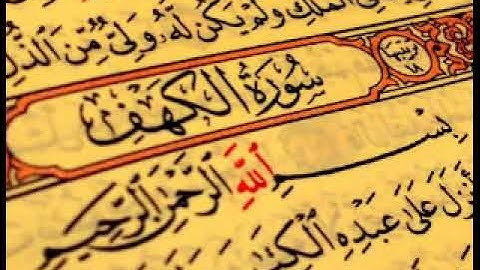 فِي ٱلْمُلْكِ وَلَمْ يَكُن لَّهُۥ وَلِىٌّ مِّنَ ٱلذُّلِّ
سُورَةُ الكَهْفِ
بِسْمِ ٱللَّهِ ٱلرَّحْمَٰنِ ٱلرَّحِيمِ
أَنزَلَ عَلَىٰ عَبْدِهِ ٱلْكِتَٰبَ